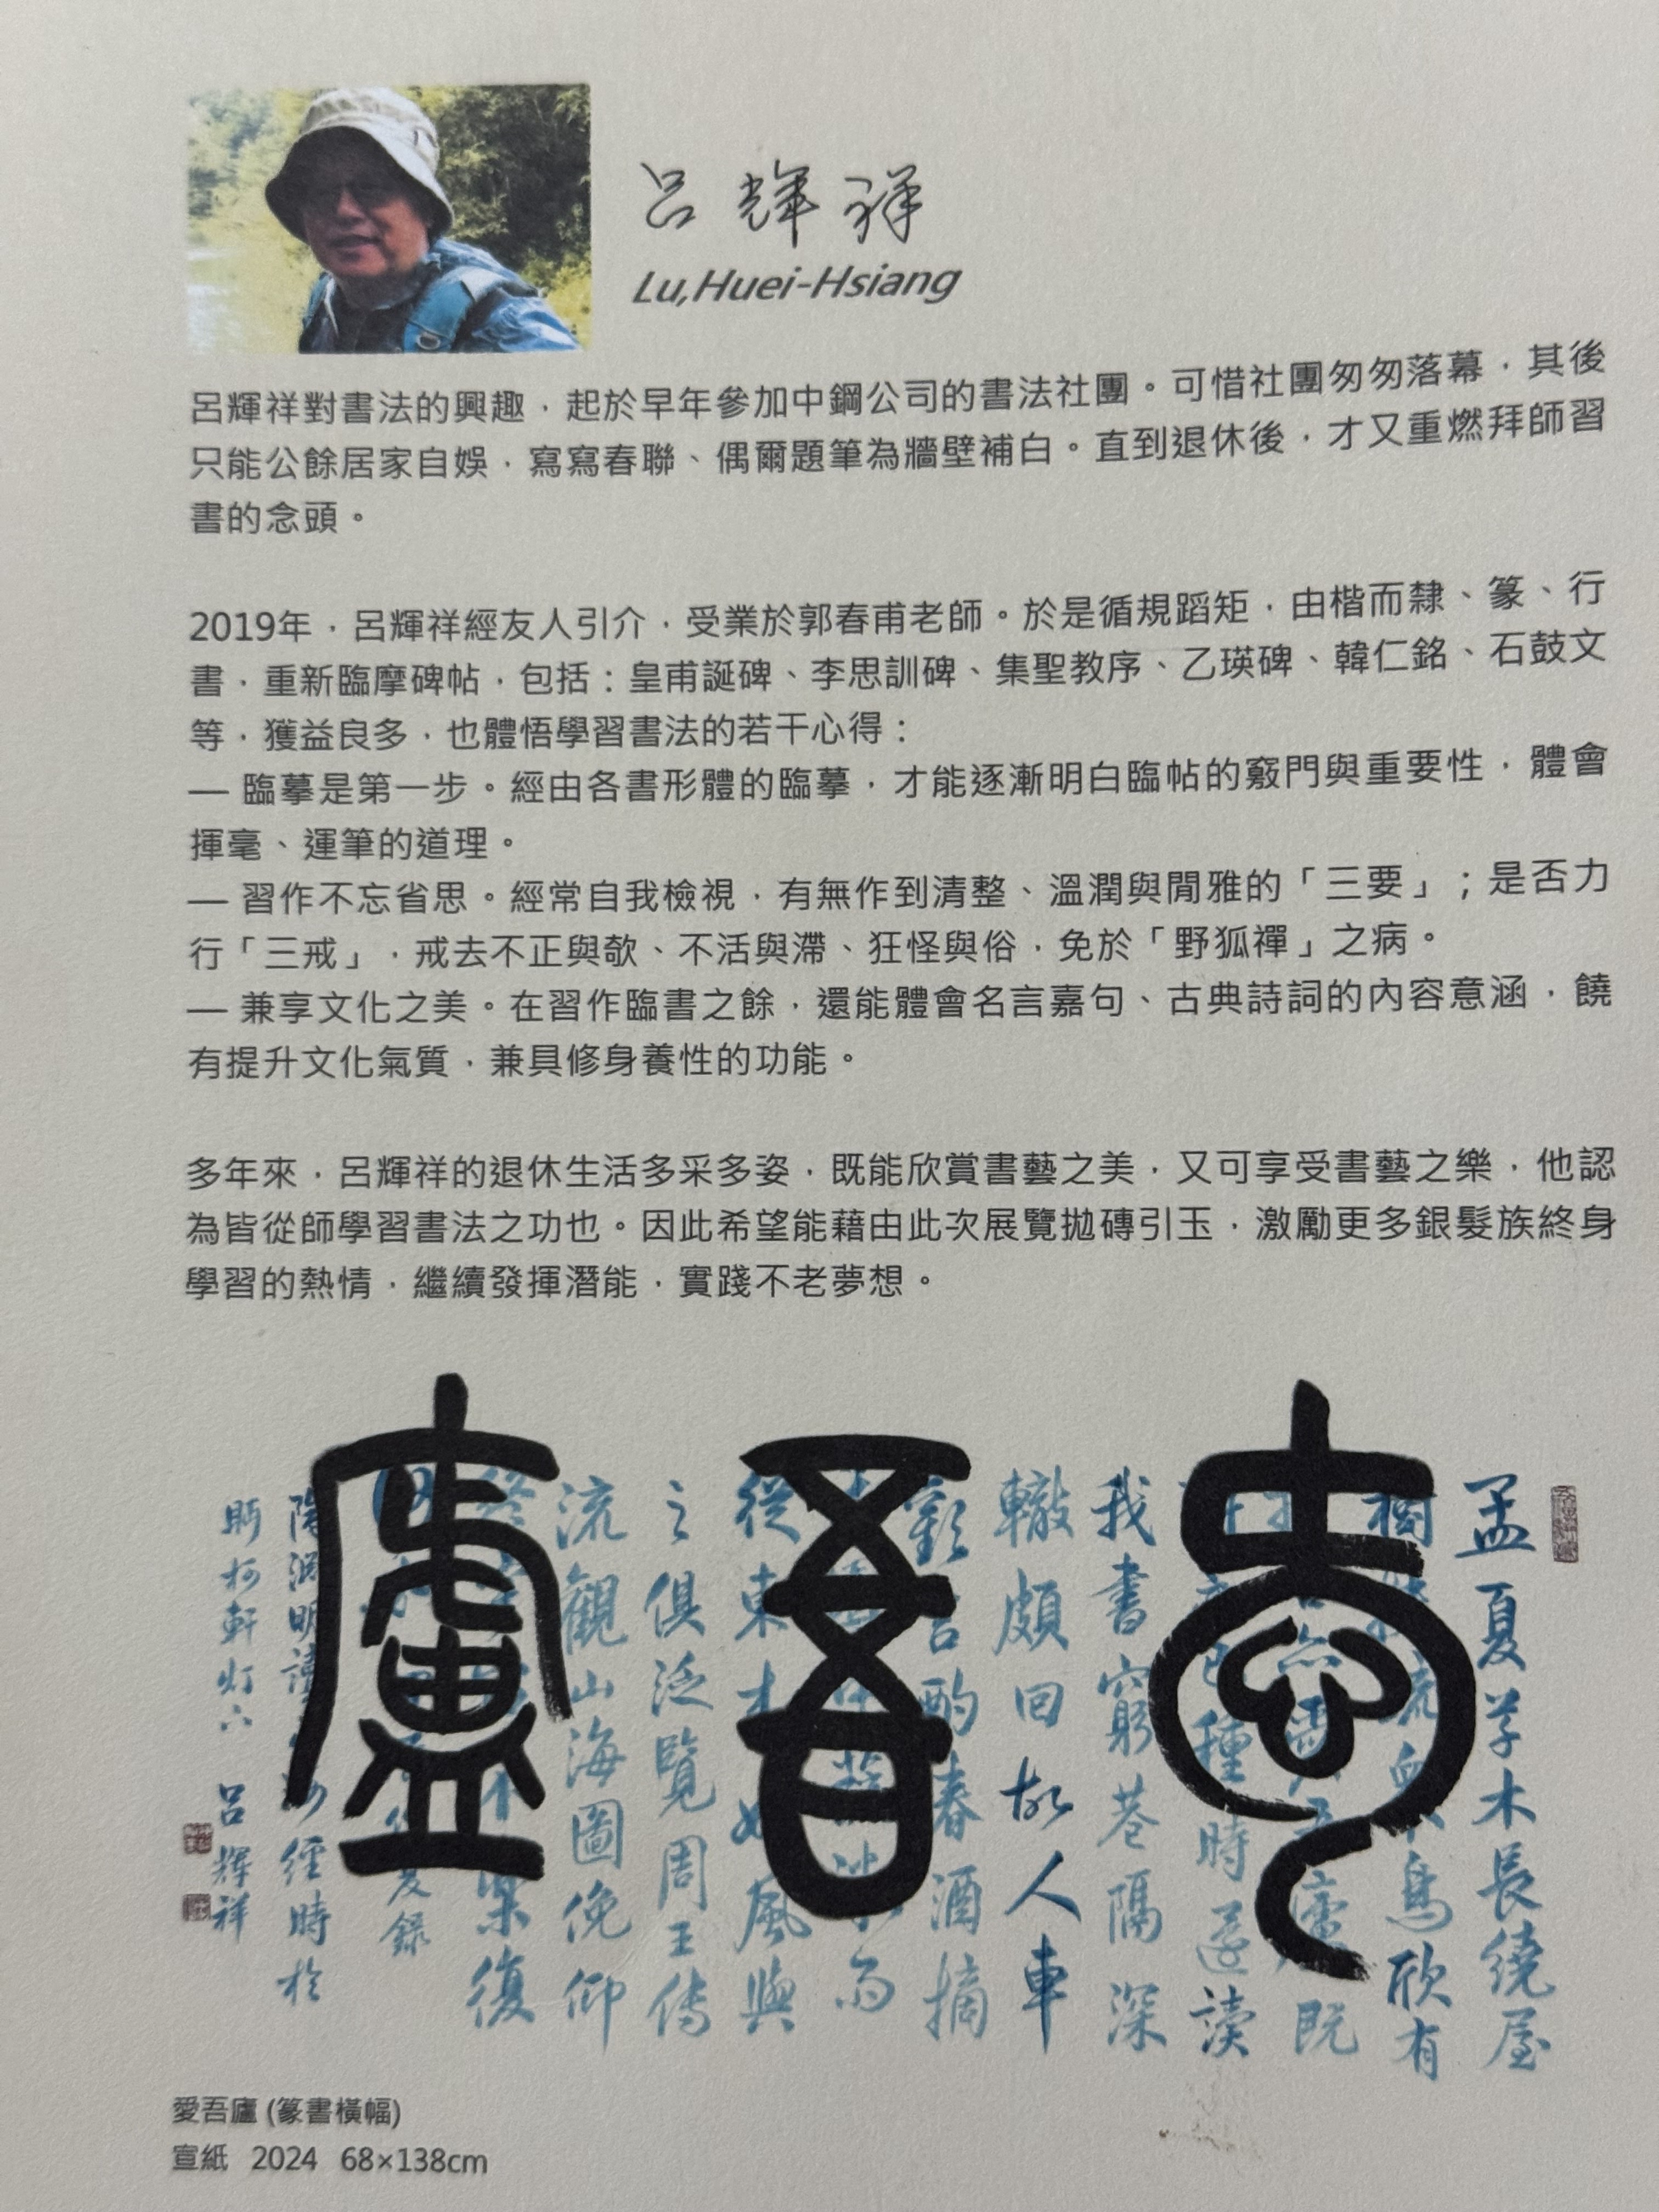 呂輝祥
Lu,Huei-Hsiang
呂輝祥對書法的興趣，起於早年參加中鋼公司的書法社團。可惜社團匆匆落幕，其後
只能公餘居家自娛，寫寫春聯、偶爾題筆為牆壁補白。直到退休後，才又重燃拜師習
書的念頭。
2019年，呂輝祥經友人引介，受業於郭春甫老師。於是循規蹈矩，由楷而隸、篆、行
書，重新臨摩碑帖，包括：皇甫誕碑、李思訓碑、集聖教序、乙瑛碑、韓仁銘、石鼓文
等，獲益良多，也體悟學習書法的若干心得：
— 臨摹是第一步。經由各書形體的臨摹，才能逐漸明白臨帖的竅門與重要性，體會
揮毫、運筆的道理。
— 習作不忘省思。經常自我檢視，有無作到清整、溫潤與閒雅的「三要」；是否力
行「三戒」，戒去不正與欹、不活與滯、狂怪與俗，免於「野狐禪」之病。
— 兼享文化之美。在習作臨書之餘，還能體會名言嘉句、古典詩詞的內容意涵，饒
有提升文化氣質，兼具修身養性的功能。
多年來，呂輝祥的退休生活多采多姿，既能欣賞書藝之美，又可享受書藝之樂，他認
為皆從師學習書法之功也。因此希望能藉由此次展覽拋磚引玉，激勵更多銀髮族終身
學習的熱情，繼續發揮潛能，實踐不老夢想。
愛吾廬
孟夏草木長繞屋
樹疏鳥欣有
廬既
種時還讀
我書窮巷隔深
轍頗回故人車
歡言酌春酒摘
從東來好風與
之俱泛覽周王傳
流觀山海圖俛仰
終樂復
錄
陶淵明讀經時於
呂輝祥
愛吾廬 (篆書橫幅)
宣紙 2024 68×138cm